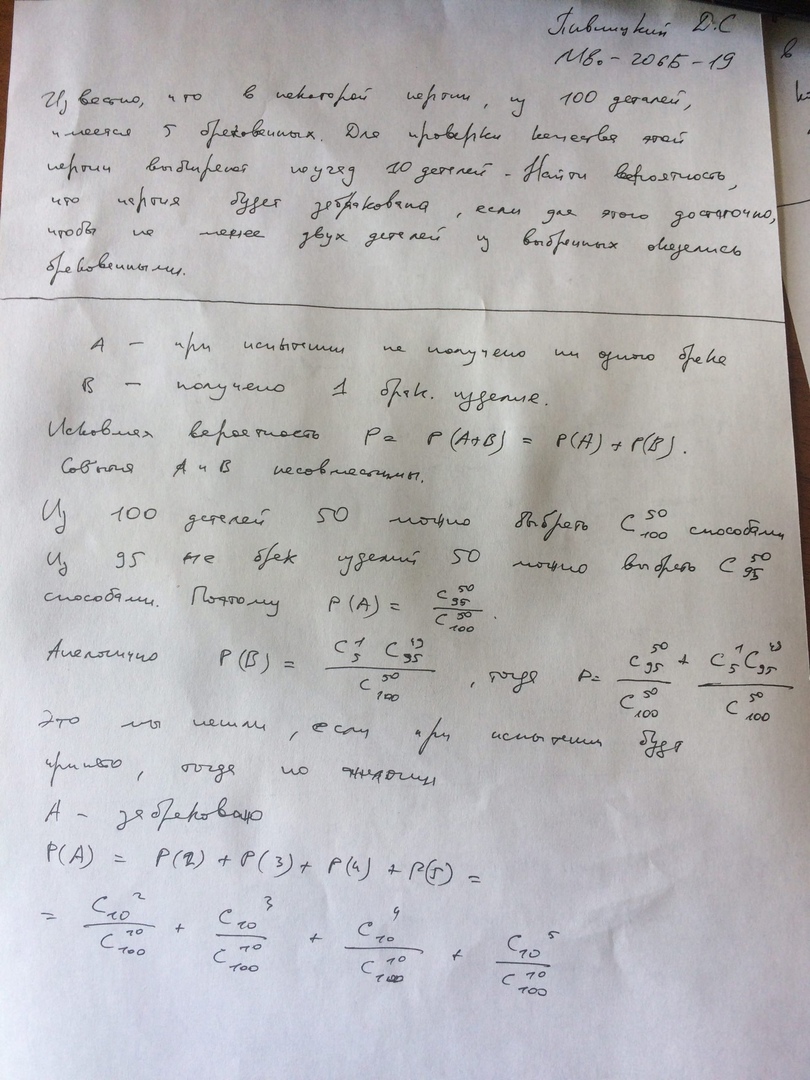 Д.С
МВо-206Б-19
в
Известно, что в некоторой партии, из 100 деталей,
имеется 5 бракованных. Для проверки качества этой
партии выбирают наугад 10 деталей. Найти вероятность,
что партия будет забракована, если для этого достаточно,
чтобы не менее двух деталей из выбранных оказались
бракованными.
A - при испытании не получено ни одного брака
B - получено 1 брак. изделие.
Искомая вероятность P = P(A+B) = P(A) + P(B).
События A и B несовместимы.
Из 100 деталей 50 можно выбрать C_100^50 способами
Из 95 не брак изделий 50 можно выбрать C_95^50
способами. Поэтому P(A) = C_95^50 / C_100^50.
Аналогично P(B) = C_5^1 C_95^49 / C_100^50, тогда P = C_95^50 / C_100^50 + C_5^1 C_95^49 / C_100^50
Это мы нашли, если при испытании будет
тогда по
A - забраковано
P(A) = P(2) + P(3) + P(4) + P(5) =
= C_10^2 / C_100^10 + C_10^3 / C_100^10 + C_10^4 / C_100^10 + C_10^5 / C_100^10